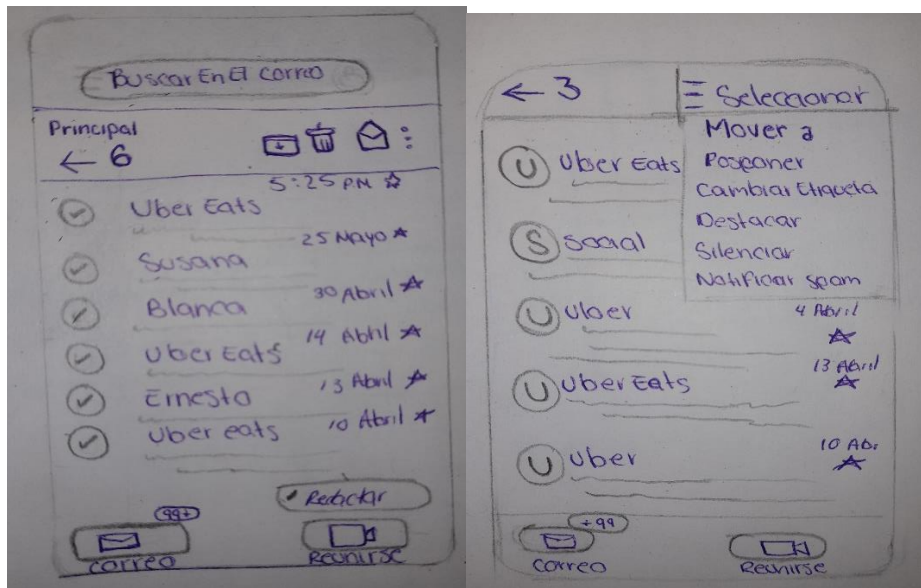 Buscar En El correo
Principal
← 6
5:25 PM
Uber Eats
25 Mayo
Susana
30 Abril
Blanca
14 Abril
Uber Eats
13 Abril
Ernesto
10 Abril
Uber eats
Redactar
99+
correo
Reunirse
← 3
Seleccionar
Mover a
Posponer
Cambiar Etiqueta
Destacar
Silenciar
Notificar spam
U Uber Eats
S Social
U Uber
4 Abril
13 Abril
U Uber Eats
10 Abr
U Uber
+99
correo
Reunirse